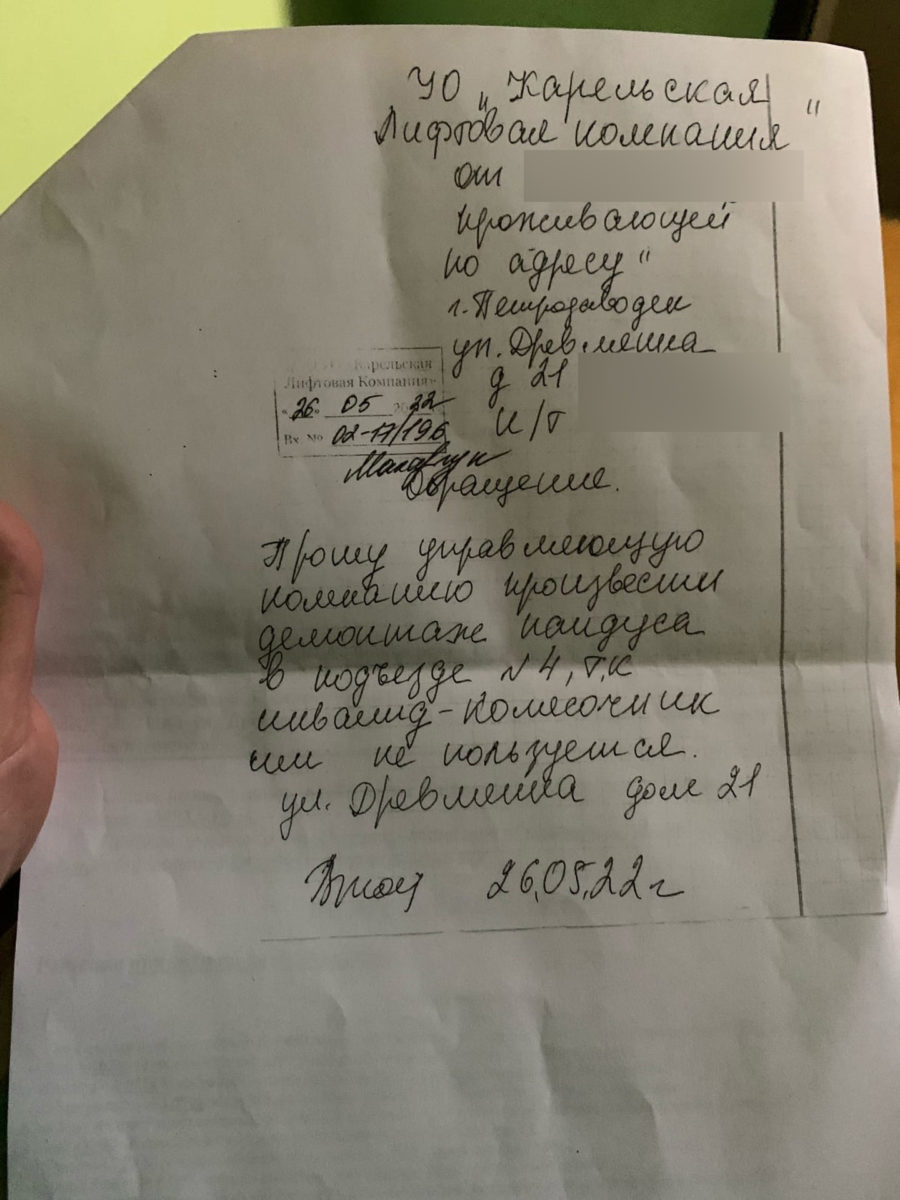 УО „Карельская
Лифтовая компания"
от
проживающей
по адресу"
г. Петрозаводск
ул. Древлянка
д 21
и/т
Карельская
Лифтовая Компания»
«26» 05 22
Вх. № 02-17/196
Обращение.
Прошу управляющую
компанию произвести
демонтаж пандуса
в подъезде N4, т,к
инвалид-колясочник
им не пользуется.
ул. Древлянка дом 21
26,05,22 г